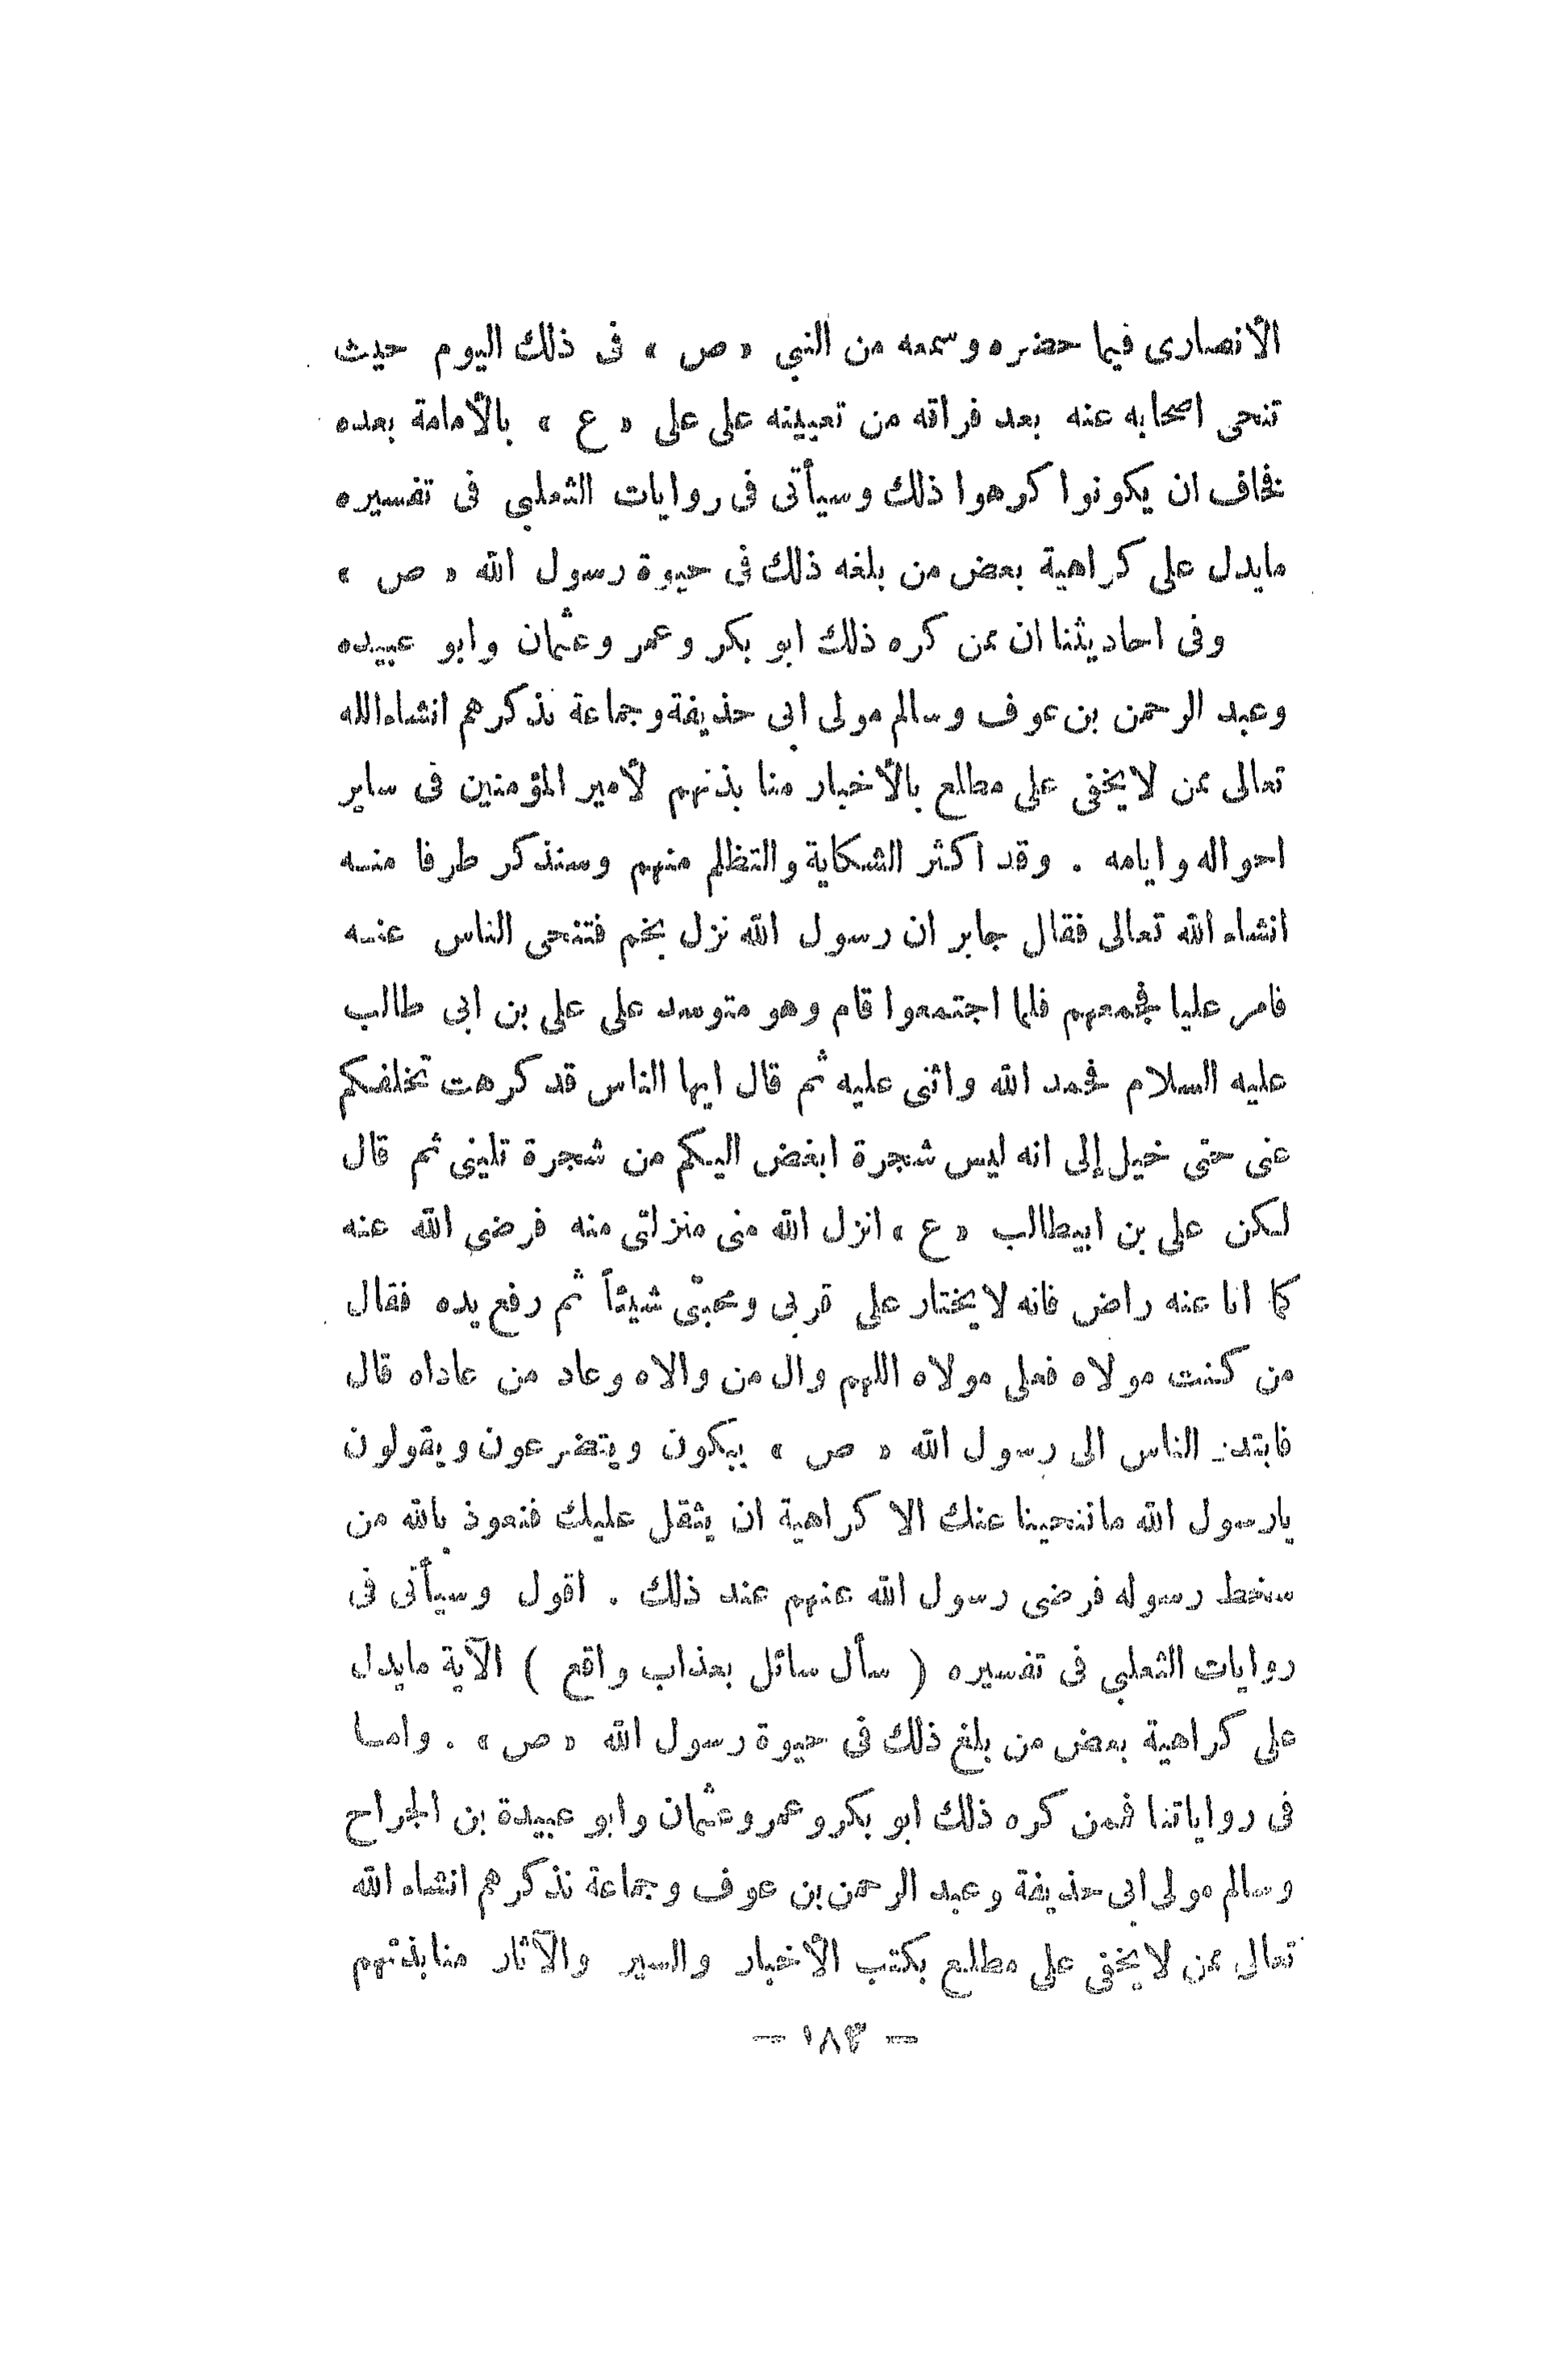 الأنصارى فيما حضره وسمعه من النبي « ص » فى ذلك اليوم حيث
تنحى اصحابه عنه بعد فراقه من تعيينه على على « ع » بالأمامة بعده
فخاف ان يكونوا كرهوا ذلك وسيأتى فى روايات الثعلبي فى تفسيره
مايدل على كراهية بعض من بلغه ذلك فى حيوة رسول الله « ص »
وفى احاديثنا ان ممن كره ذلك ابو بكر وعمر وعثمان وابو عبيده
وعبد الرحمن بن عوف وسالم مولى ابى حذيفة وجماعة نذكرهم انشاءالله
تعالى ممن لايخفى على مطلع بالأخبار منا بذتهم لأمير المؤمنين فى ساير
احواله وايامه . وقد اكثر الشكاية والتظلم منهم وسنذكر طرفا منه
انشاء الله تعالى فقال جابر ان رسول الله نزل بخم فتنحى الناس عنه
فامر عليا فجمعهم فلما اجتمعوا قام وهو متوسد على على بن ابى طالب
عليه السلام فحمد الله واثنى عليه ثم قال ايها الناس قد كرهت تخلفكم
عنى حتى خيل إلى انه ليس شجرة ابغض اليكم من شجرة تلينى ثم قال
لكن على بن ابيطالب « ع » انزل الله منى منزلتى منه فرضى الله عنه
كما انا عنه راض فانه لايختار على قربى ومحبتى شيئاً ثم رفع يده فقال
من كنت مولاه فعلى مولاه اللهم وال من والاه وعاد من عاداه قال
فابتدر الناس الى رسول الله « ص » يبكون ويتضرعون ويقولون
يارسول الله ماتنحينا عنك الا كراهية ان يثقل عليك فنعوذ بالله من
سخط رسوله فرضى رسول الله عنهم عند ذلك . اقول وسيأتى فى
روايات الثعلبي فى تفسيره ( سأل سائل بعذاب واقع ) الآية مايدل
على كراهية بعض من بلغ ذلك فى حيوة رسول الله « ص » . واما
فى رواياتنا فممن كره ذلك ابو بكر وعمر وعثمان وابو عبيدة بن الجراح
وسالم مولى ابى حذيفة وعبد الرحمن بن عوف وجماعة نذكرهم انشاء الله
تعالى ممن لايخفى على مطلع بكتب الأخبار والسير والآثار منابذتهم
— ١٨٣ —